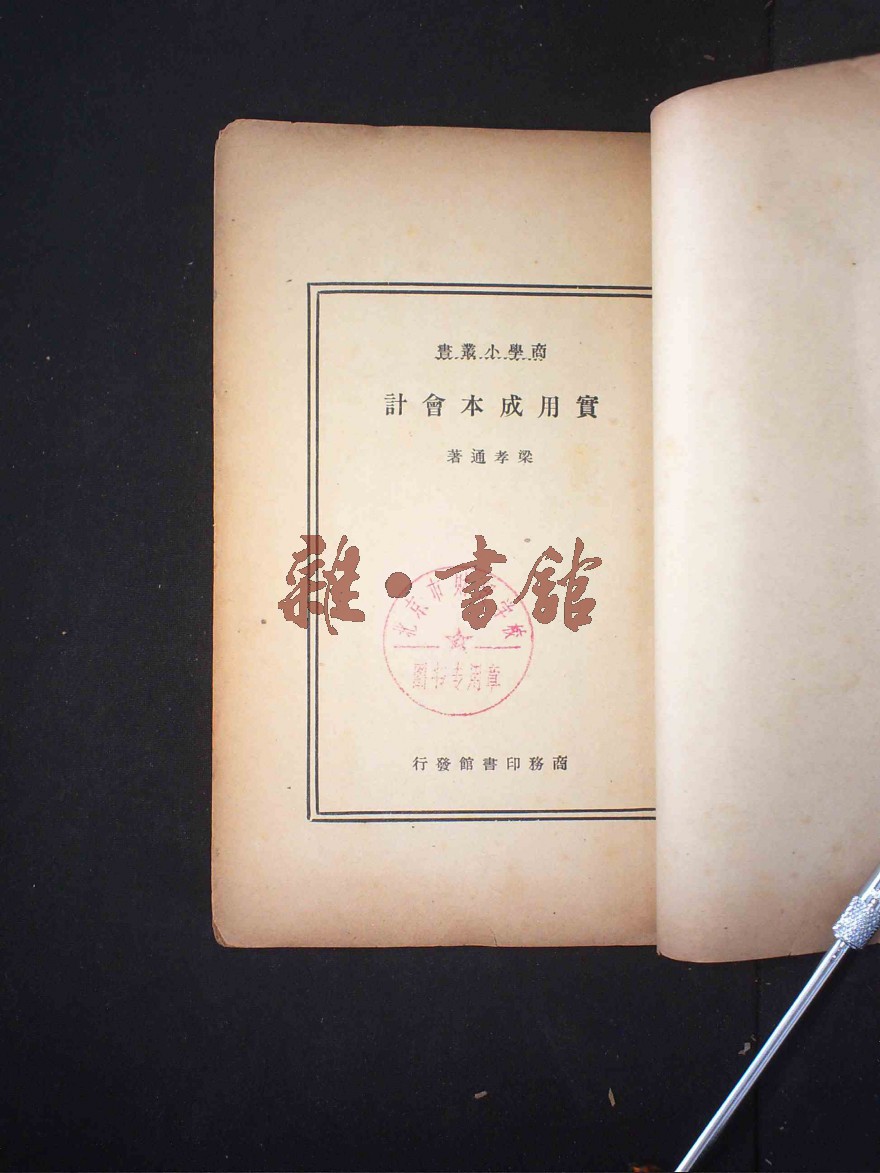 商學小叢書
實用成本會計
梁孝通著
雜·書館
北京市
商務印書館發行